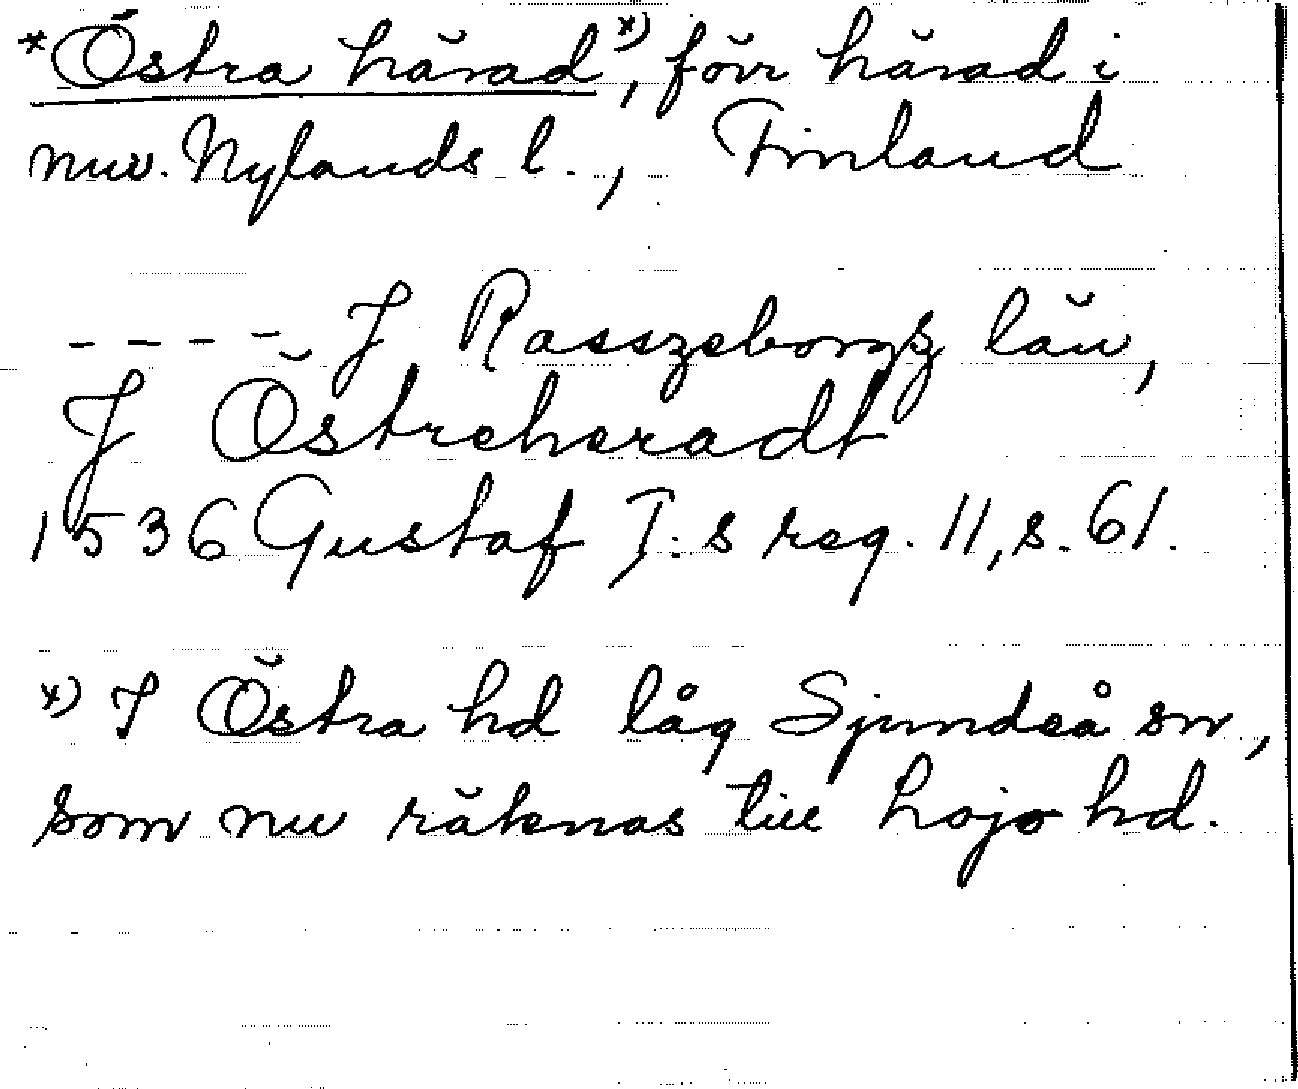 *Östra härad*), förr härad i
nuv. Nylands l., Finland
- - - - J Rasszeborgz län,
J Östreheradt
1536 Gustaf I:s reg. 11, s. 61.
x) I Östra hd låg Sjundeå sn,
som nu räknas till Lojo hd.